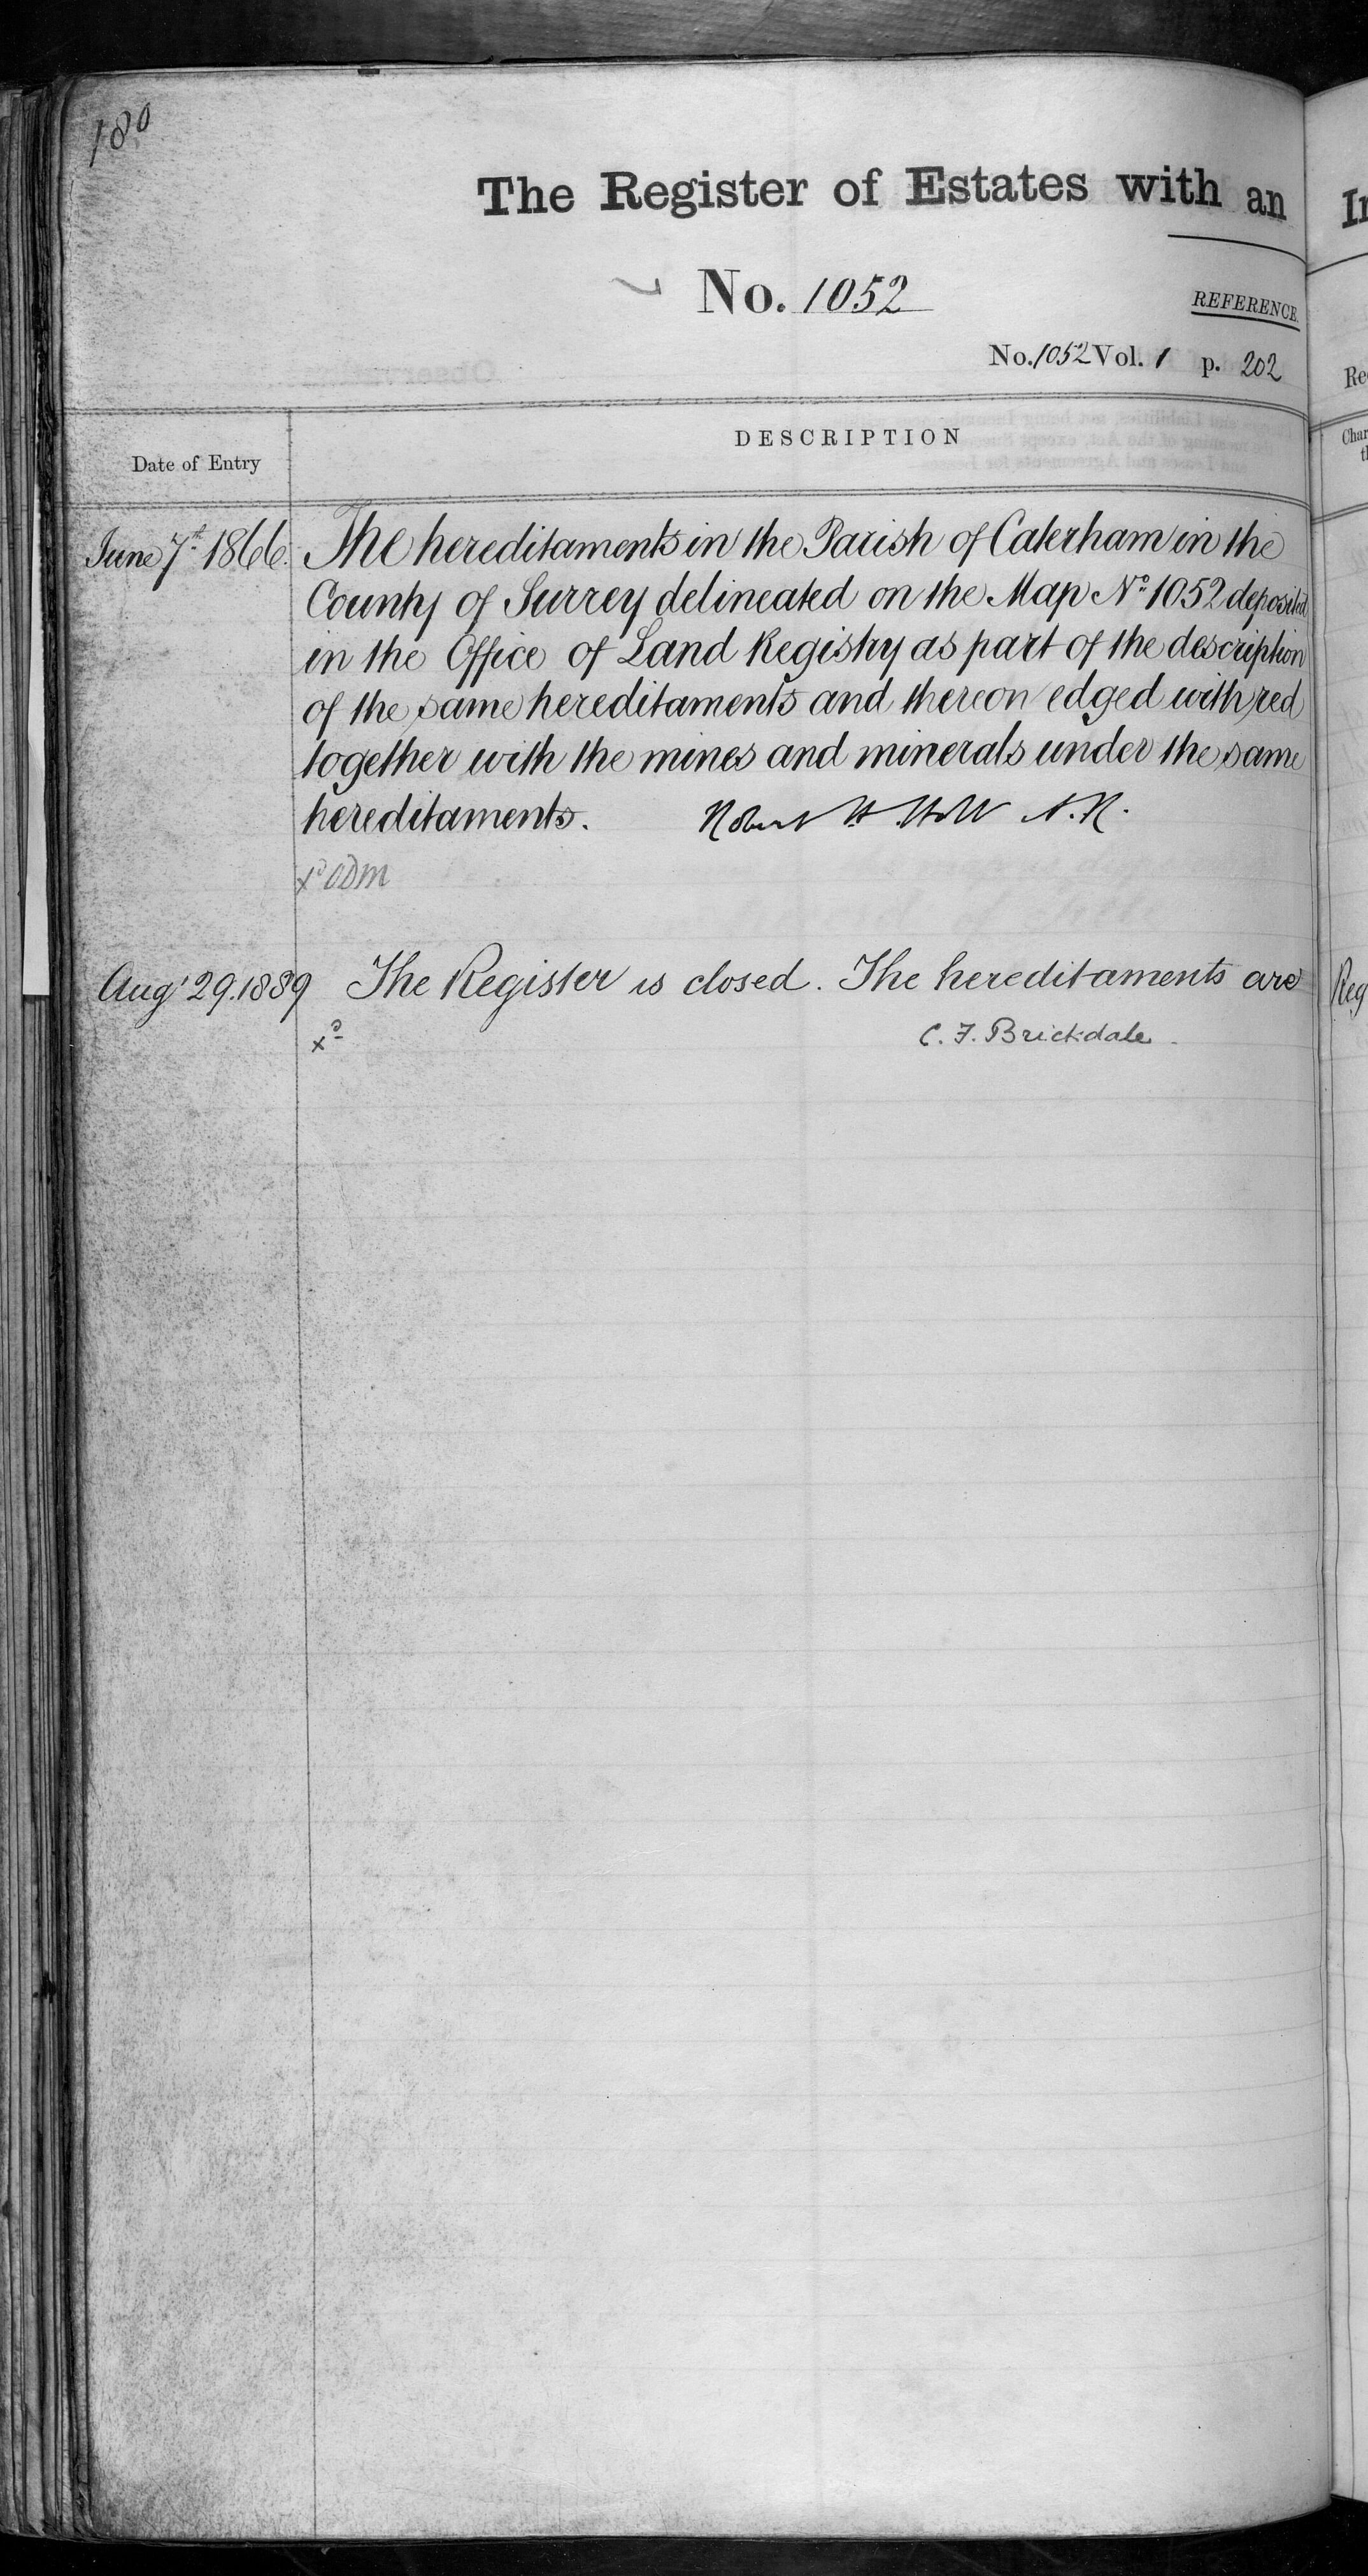 180
The Register of Estates with an
No. 1052
REFERENCE.
No. 1052 Vol. 1 p. 202
DESCRIPTION
Date of Entry
June 7th 1866. The hereditaments in the Parish of Caterham in the
County of Surrey delineated on the Map No 1052 deposited
in the Office of Land Registry as part of the description
of the same hereditaments and thereon edged with red
together with the mines and minerals under the same
hereditaments. Robert H. Holt A.R.
xd ODM
Augt 29. 1889 The Register is closed. The hereditaments are
xd C. F. Brickdale
Reg